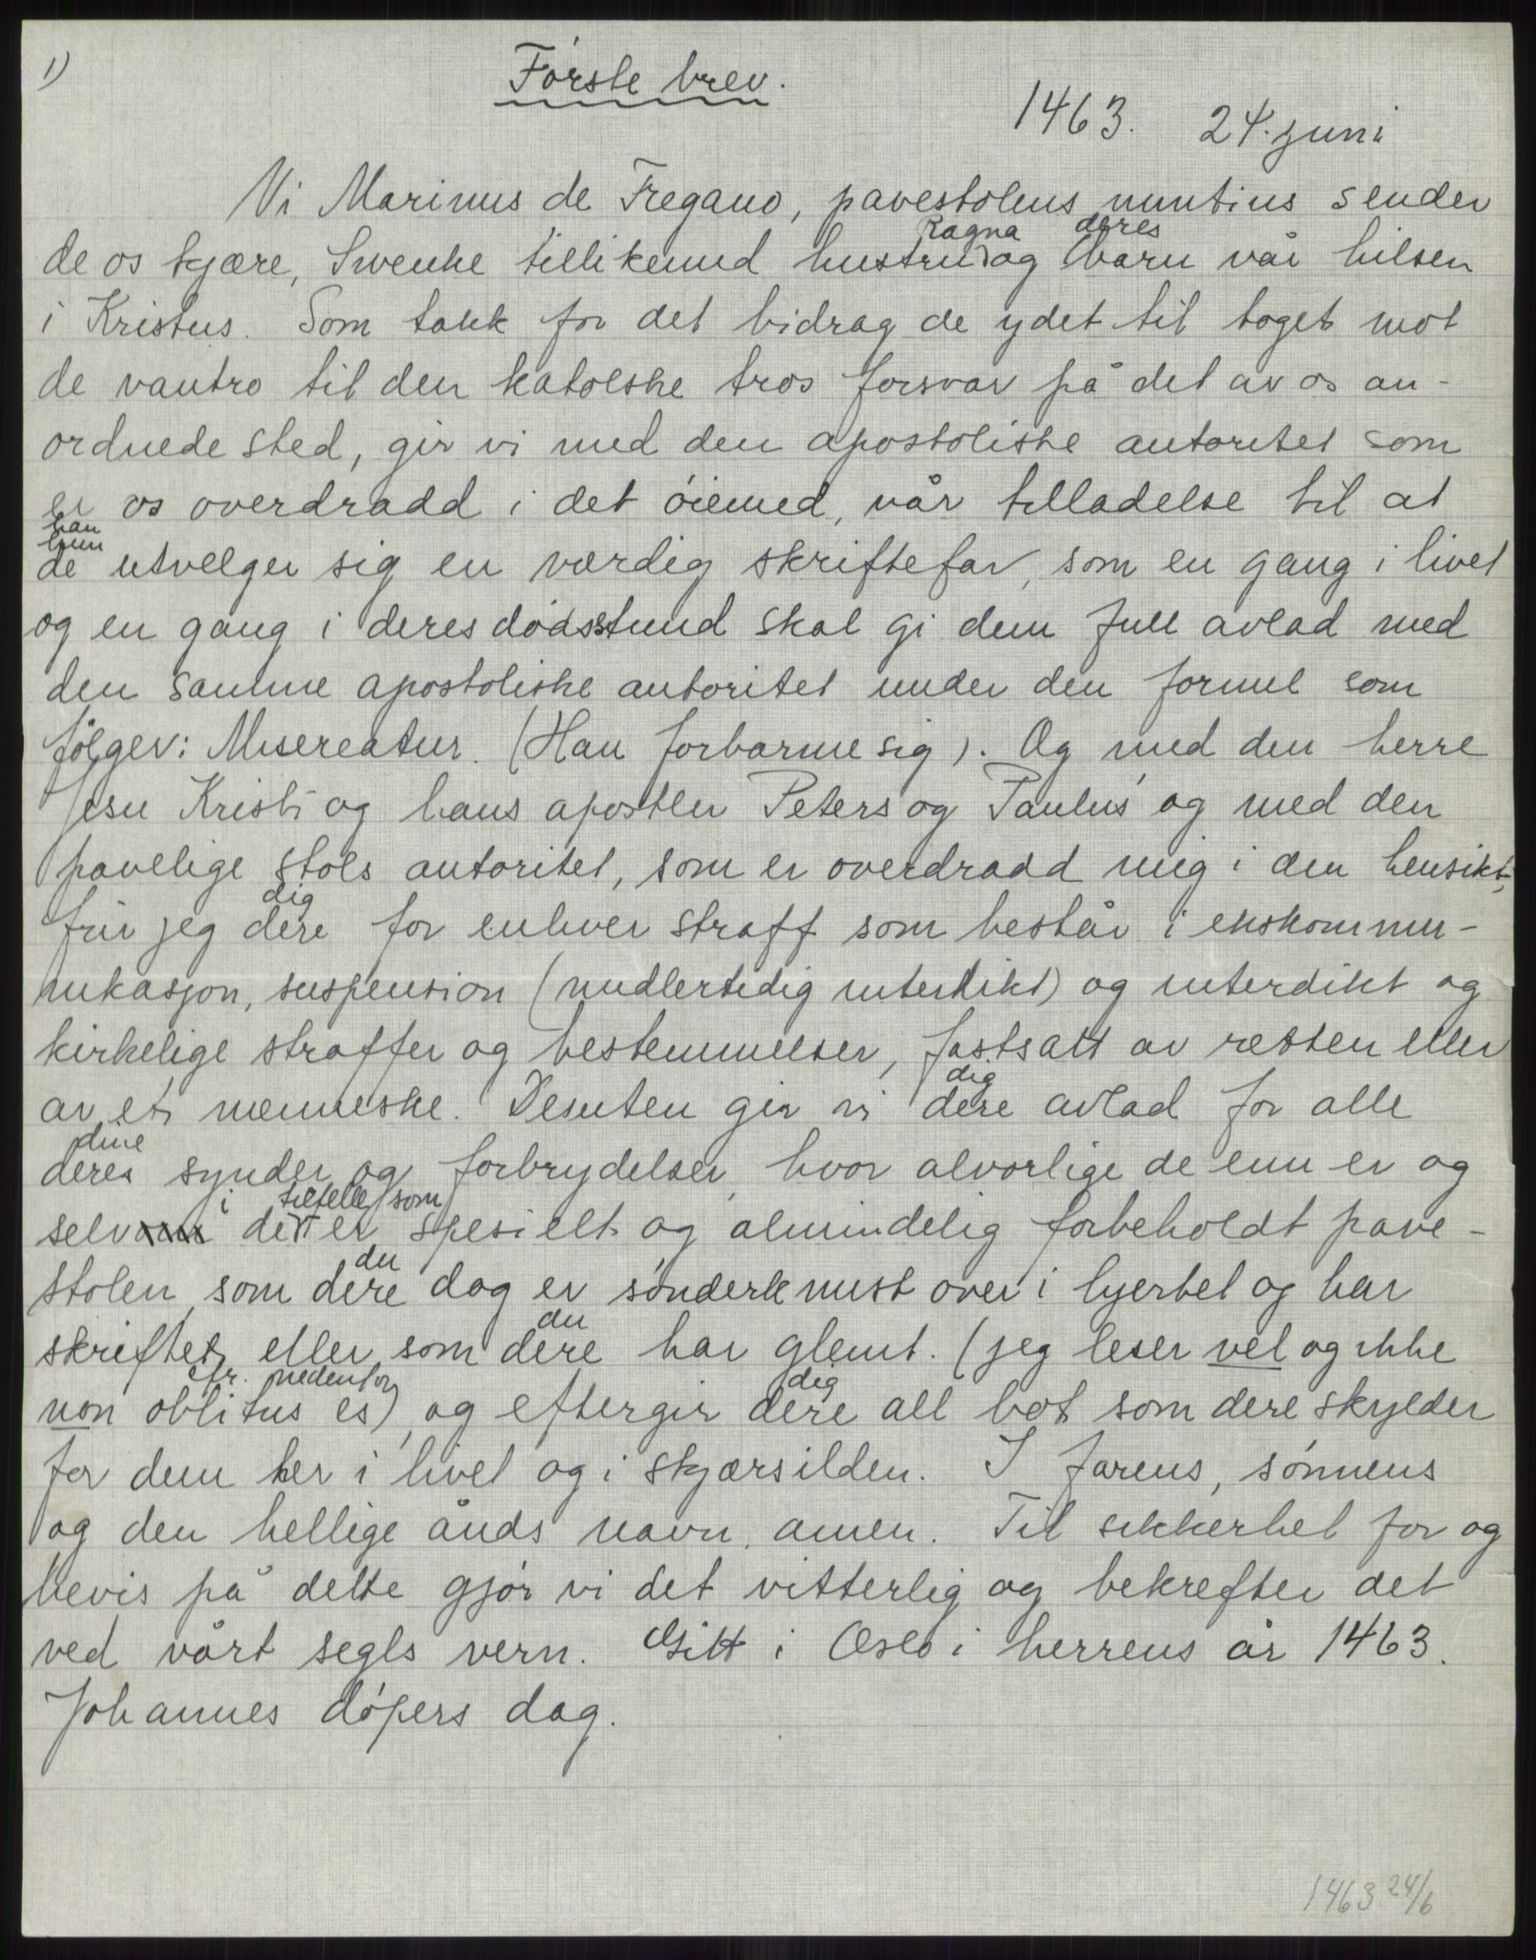 1)
Første brev.
1463. 24. juni
Vi Marinus de Fregano, pavestolens nuntius sender
Ragna deres
de os kjære, Swenke tillikemed hustru og barn vår hilsen
i Kristus. Som takk for det bidrag de ydet til toget mot
de vantro til den katolske tros forsvar på det av os an-
ordnede sted, gir vi med den apostoliske autoritet som
er os overdradd i det öiemed, vår tilladelse til at
han
hun
de utvelger sig en værdig skriftefar, som en gang i livet
og en gang i deres dødsstund skal gi dem full avlad med
den samme apostoliske autoritet under den formel som
følger: Misereatur. (Han forbarme sig). Og med den herre
Jesu Kristi og hans apostler Peters og Paulus' og med den
pavelige stols autoritet, som er overdradd mig i den hensikt,
dig
frir jeg dere for enhver straff som består i ekskommu-
nikasjon, suspension (midlertidig interdikt) og interdikt og
kirkelige straffer og bestemmelser, fastsatt av retten eller
dig
av et menneske. Desuten gir vi dere avlad for alle
dine
deres synder og forbrydelser, hvor alvorlige de enn er og
i tilfelle som
selv om det er spesielt og almindelig forbeholdt pave-
du
stolen, som dere dog er sønderknust over i hjertet og har
du
skriftet, eller som dere har glemt. (jeg leser vel og ikke
cfr. nedenfor dig
non oblitus es), og eftergir dere all bot som dere skylder
for dem her i livet og i skjærsilden. I farens, sønnens
og den hellige ånds navn, amen. Til sikkerhet for og
bevis på dette gjør vi det vitterlig og bekrefter det
ved vårt segls vern. Gitt i Oslo i herrens år 1463.
Johannes døpers dag.
1463 24/6